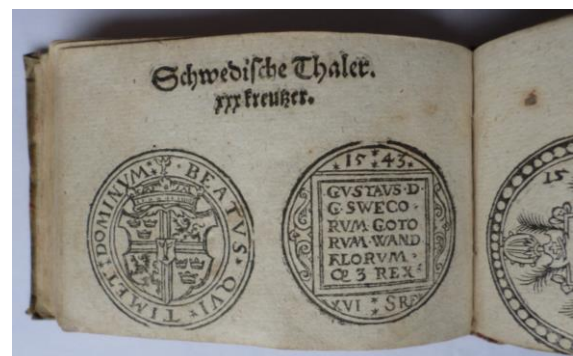 Schwedische Thaler.
xxx kreutzer.
BEATVS · QVI · TIMET · DOMINVM
· 15 · 43 ·
GVSTAVS · D ·
G · SWECO ·
RVM · GOTO
RVM · WAND
ƎREX
XVI SR
15